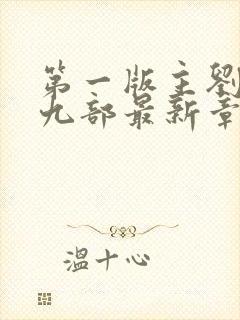 第一版主劉
九部最新章
溫十心